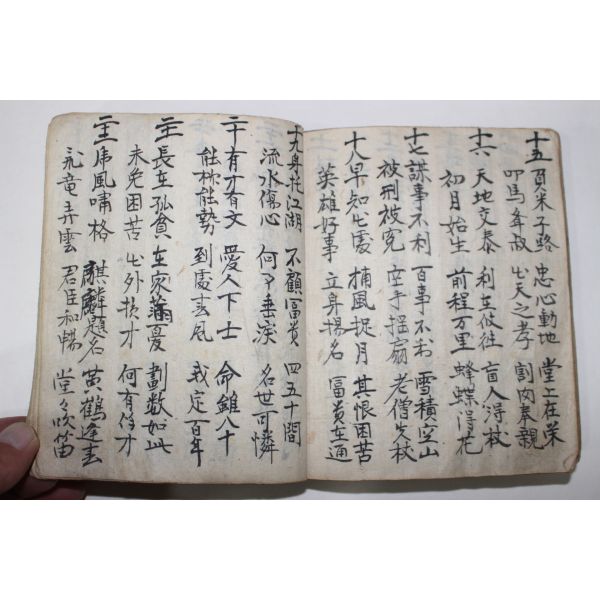 十五 負米子路 忠心動地 堂上在榮
叩馬年叔 出天之孝 割肉奉親
十六 天地交泰 利在攸往 盲人得杖
初月始生 前程万里 蜂蝶得花
十七 謀事不利 百事不利 雪積空山
被刑被冤 空手搖扇 老僧失杖
十八 早知出處 捕風捉月 其恨困苦
英雄好事 立身揚名 富貴在通
十九 身在江湖 不顧富貴 四五十間
流水傷心 何多垂淚 名世可憐
二十 有才有文 愛人下士 命雖八十
能称能勢 到處春風 我定百年
二十一 長在孤貧 在家滿憂 劃数如此
未免困苦 出外損才 何有得才
二十二 虎風嘯格 麒麟題名 黃鶴逢春
竜弄雲 君臣和暢 堂々吹笛